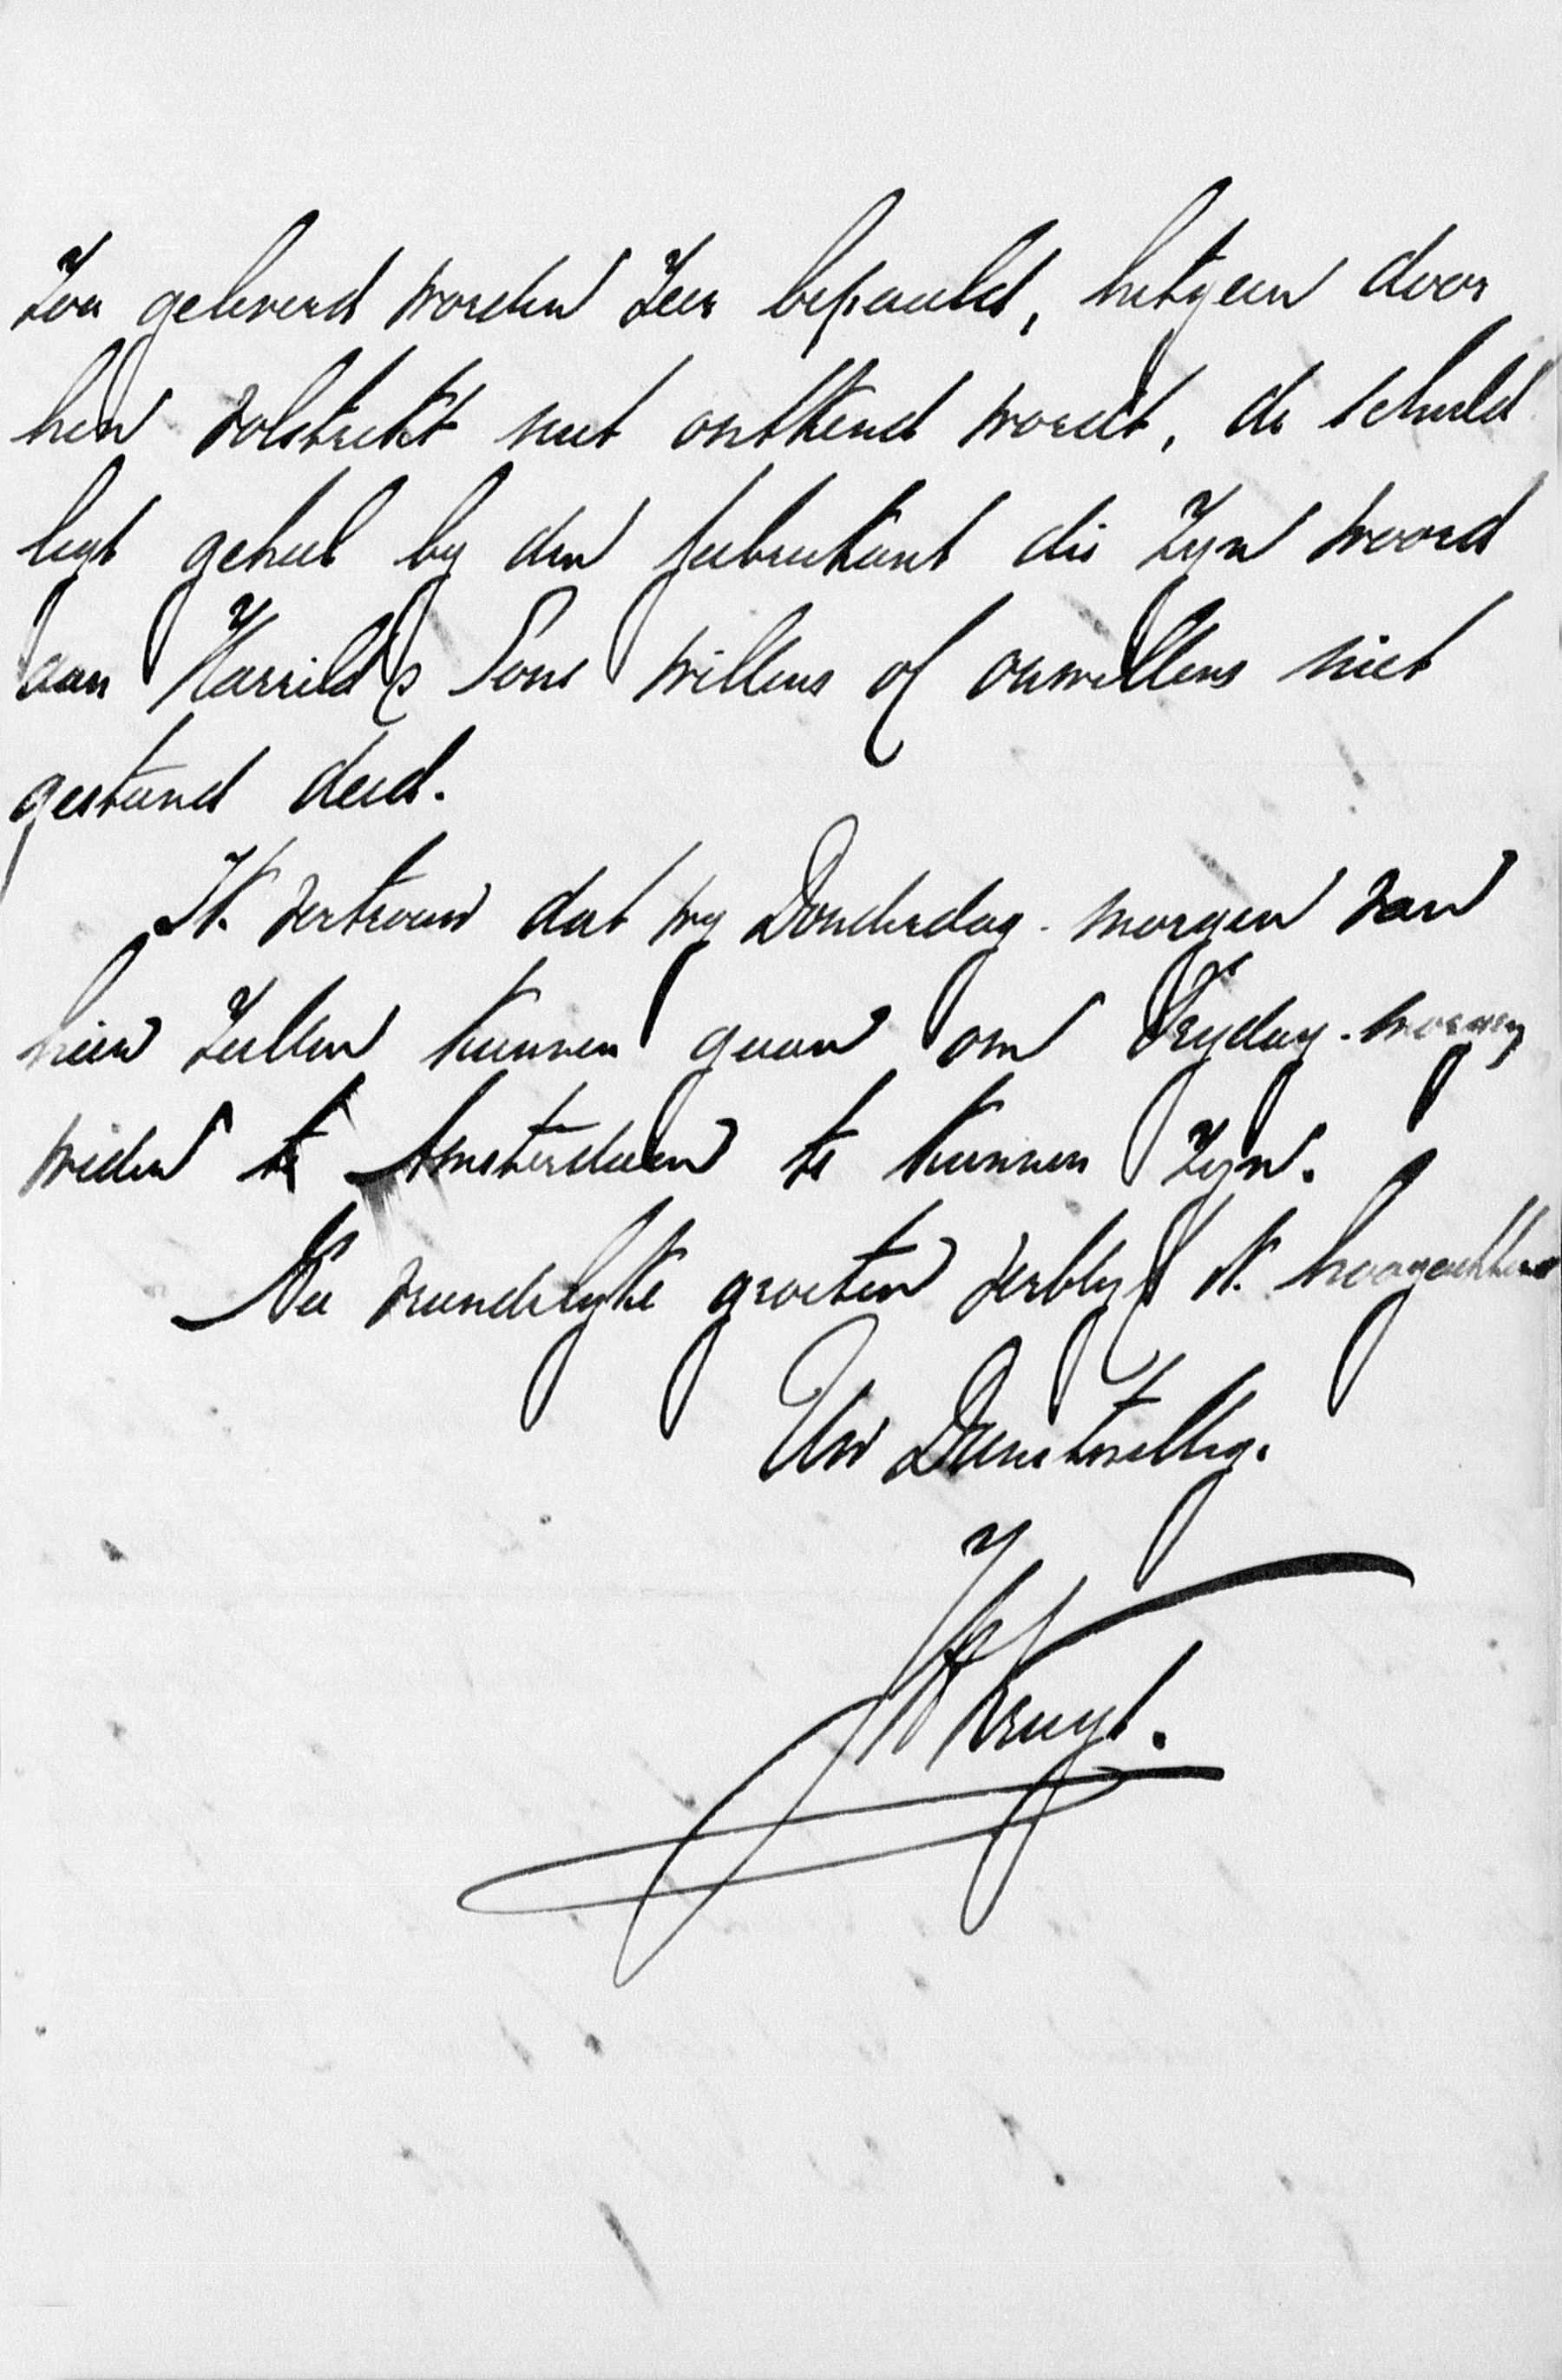 zou geleverd worden zeer bepaald, hetgeen door
hen volstrekt niet ontkend wordt, de schuld
ligt geheel by den fabrikant die zyn woord
aan Harrild & Sons willens of onwillens niet
gestand deed.
Ik vertrouw dat wy Donderdag-morgen van
hier zullen kunnen gaan om Vrydag-morgen
weder te Amsterdam te kunnen zyn.
Na vriendelyke groeten verblyf ik hoogachtend
Uw Dienstwillig.
Kruyt.